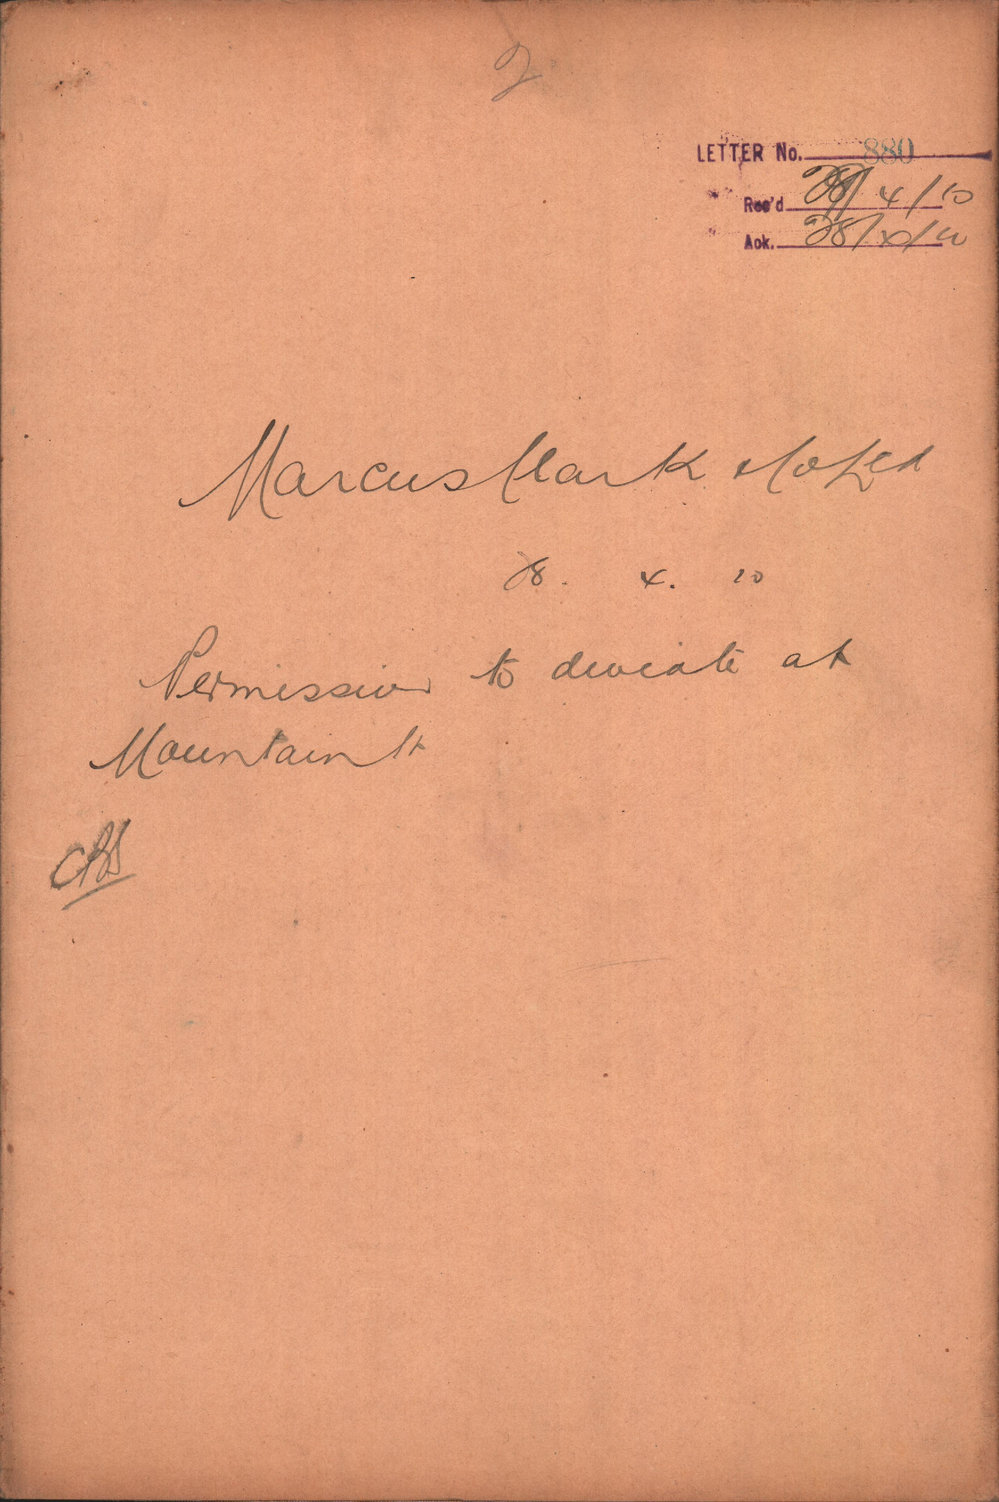 2
LETTER No. 880
Rec'd 28/4/10
Ack. 28/4/10
Marcus Clark & Co Ltd
28. 4. 10
Permission to deviate at
Mountain St